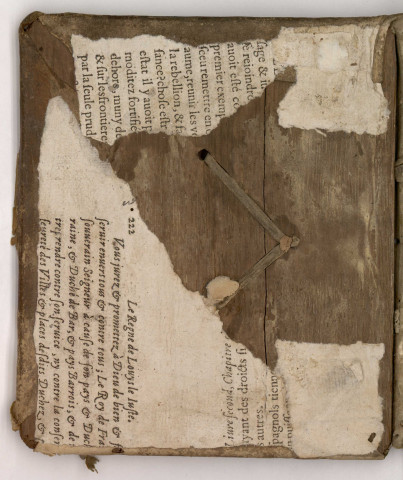 sage & 
e rejoindre
auoit esté co
premier exemp
sceu remettre en
aume, reunis les v
la rebellion, & f
sance? chose estr
estat il y auoit p
moditez fortifié
dehors, muny de
& sur les frontiere
par la seule prud
222
Le Regne de Louys le Iuste.
Vous jurez & promettez à Dieu de bien &
seruir enuers tous & contre tous, Le Roy de Fra
souuerain Seigneur à cause de son pays & Duch
raine, & Duché de Bar, & pays Barrois, & de
treprendre contre son seruice, ny contre la conser
seureté des Villes & places desdits Duchez, &
Liure second, Chapitre
yant des droicts
autres
pagnols tienn